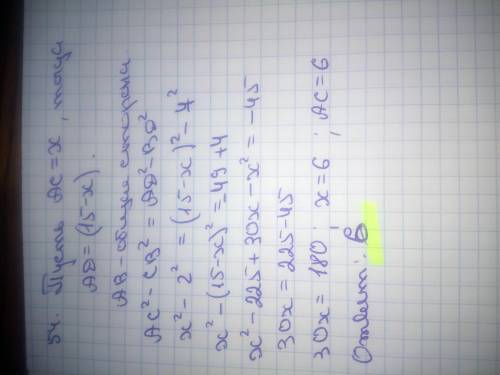 54. Пусть AC=x, тогда
AD=(15-x).
AB-общая сторона
AC²-CB²=AD²-BD²
x²-2²=(15-x)²-7²
x²-(15-x)²=-49+4
x²-225+30x-x²=-45
30x=225-45
30x=180; x=6; AC=6
Ответ: В